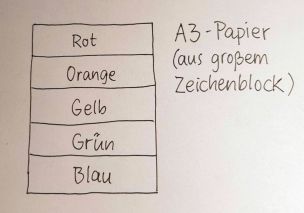 Rot
Orange
Gelb
Grün
Blau
A3-Papier
(aus großem
Zeichenblock)